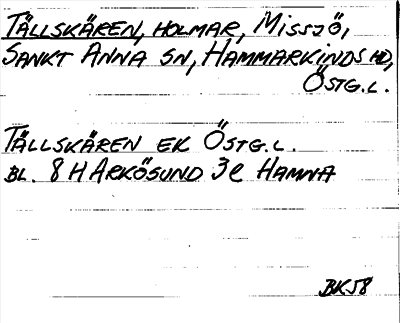 TÄLLSKÄREN, HOLMAR, MISSJÖ,
SANKT ANNA SN, HAMMARKINDS HD,
ÖSTG.L.
TÄLLSKÄREN EK ÖSTG.L.
BL. 8 H ARKÖSUND 3e HAMNA
BK58